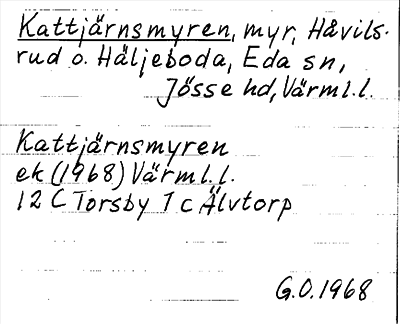 Kattjärnsmyren, myr, Håvils-
rud o. Häljeboda, Eda sn,
Jösse hd, Värml.l.
Kattjärnsmyren
ek (1968) Värml.l.
12 C Torsby 1 c Älvtorp
G.O.1968